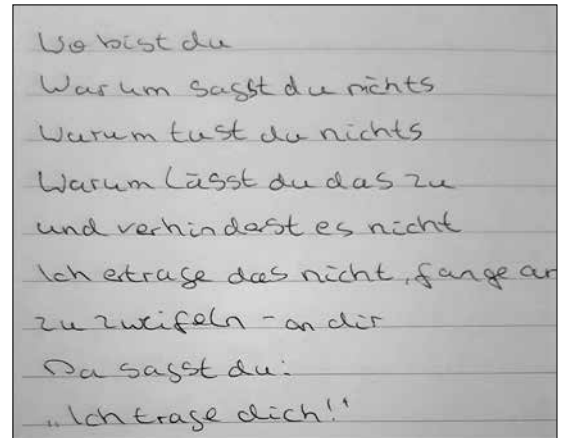 Wo bist du
Warum sagst du nichts
Warum tust du nichts
Warum lässt du das zu
und verhinderst es nicht
Ich ertrage das nicht, fange an
zu zweifeln - an dir
Da sagst du:
„Ich trage dich!"